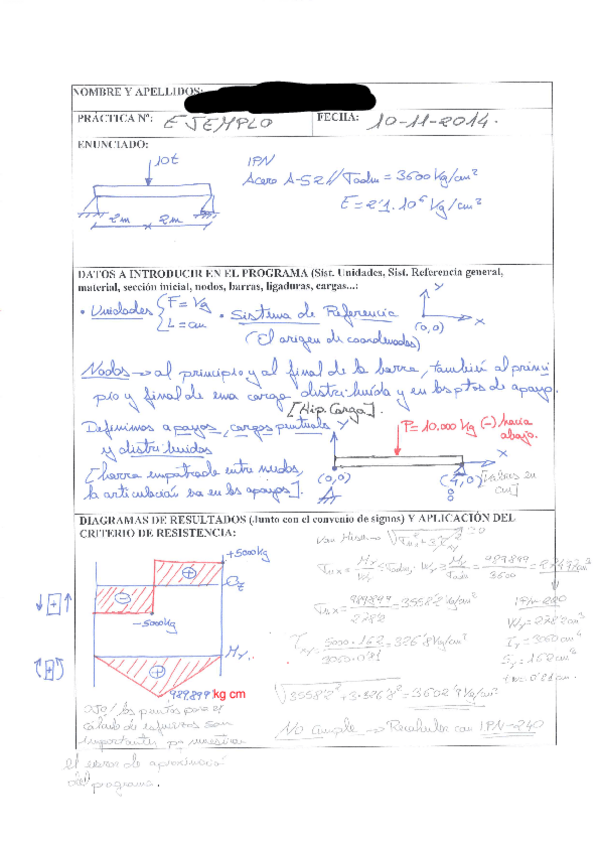 NOMBRE Y APELLIDOS:
PRÁCTICA Nº: EJEMPLO FECHA: 10-11-2014.
ENUNCIADO:
10t
2m 2m
IPN
Acero A-52 // Tadm = 3600 Kg/cm²
E = 2'1·10⁶ Kg/cm²
DATOS A INTRODUCIR EN EL PROGRAMA (Sist. Unidades, Sist. Referencia general,
material, sección inicial, nodos, barras, ligaduras, cargas...:
• Unidades { F = Kg
L = cm
• Sistema de Referencia
(El origen de coordenadas)
Y
X
(0,0)
Nodos → al principio y al final de la barra, también al princi
pio y final de una carga distribuida y en los ptos de apoyo.
[Hip. Carga].
Definimos apoyos, cargas puntuales
y distribuidas
[barra empotrada entre nudos,
la articulación va en los apoyos].
Y
P = 10.000 Kg (-) hacia
abajo.
X
(0,0)
(4,0)
[Valores en
cm]
DIAGRAMAS DE RESULTADOS (Junto con el convenio de signos) Y APLICACIÓN DEL
CRITERIO DE RESISTENCIA:
+5000 kg
+
-
-5000kg
+
989.899 kg cm
Von Mises →
989.899
3600
989.899
278
= 3558'2 Kg/cm²
5000·162
= 326'8 Kg/cm²
3060·0'81
√3558'2² + 3·326'8² = 3602'9 Kg/cm²
IPN-220
Wy = 278 cm³
Iy = 3060 cm⁴
Sy = 162 cm³
tw = 0'81 cm.
No Cumple → Recalcular con IPN-240
los puntos para el
cálculo de esfuerzos son
importantes
el error de aproximación
del programa.